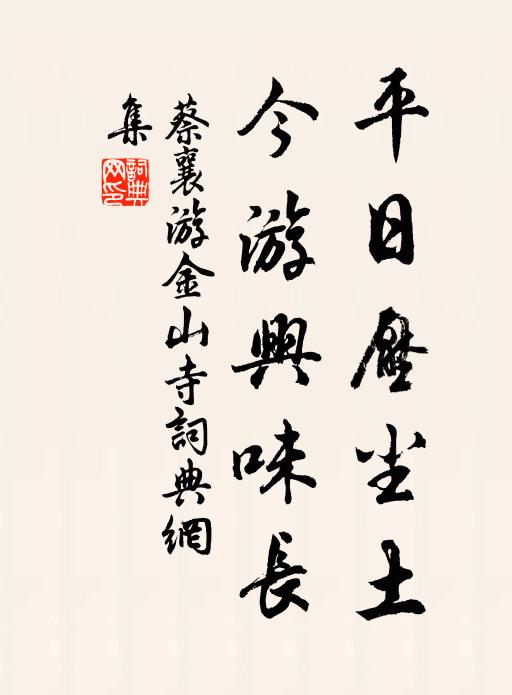 平日壓尘土
今游興味長
蔡襄游金山寺詞典網
集
詞典
网印